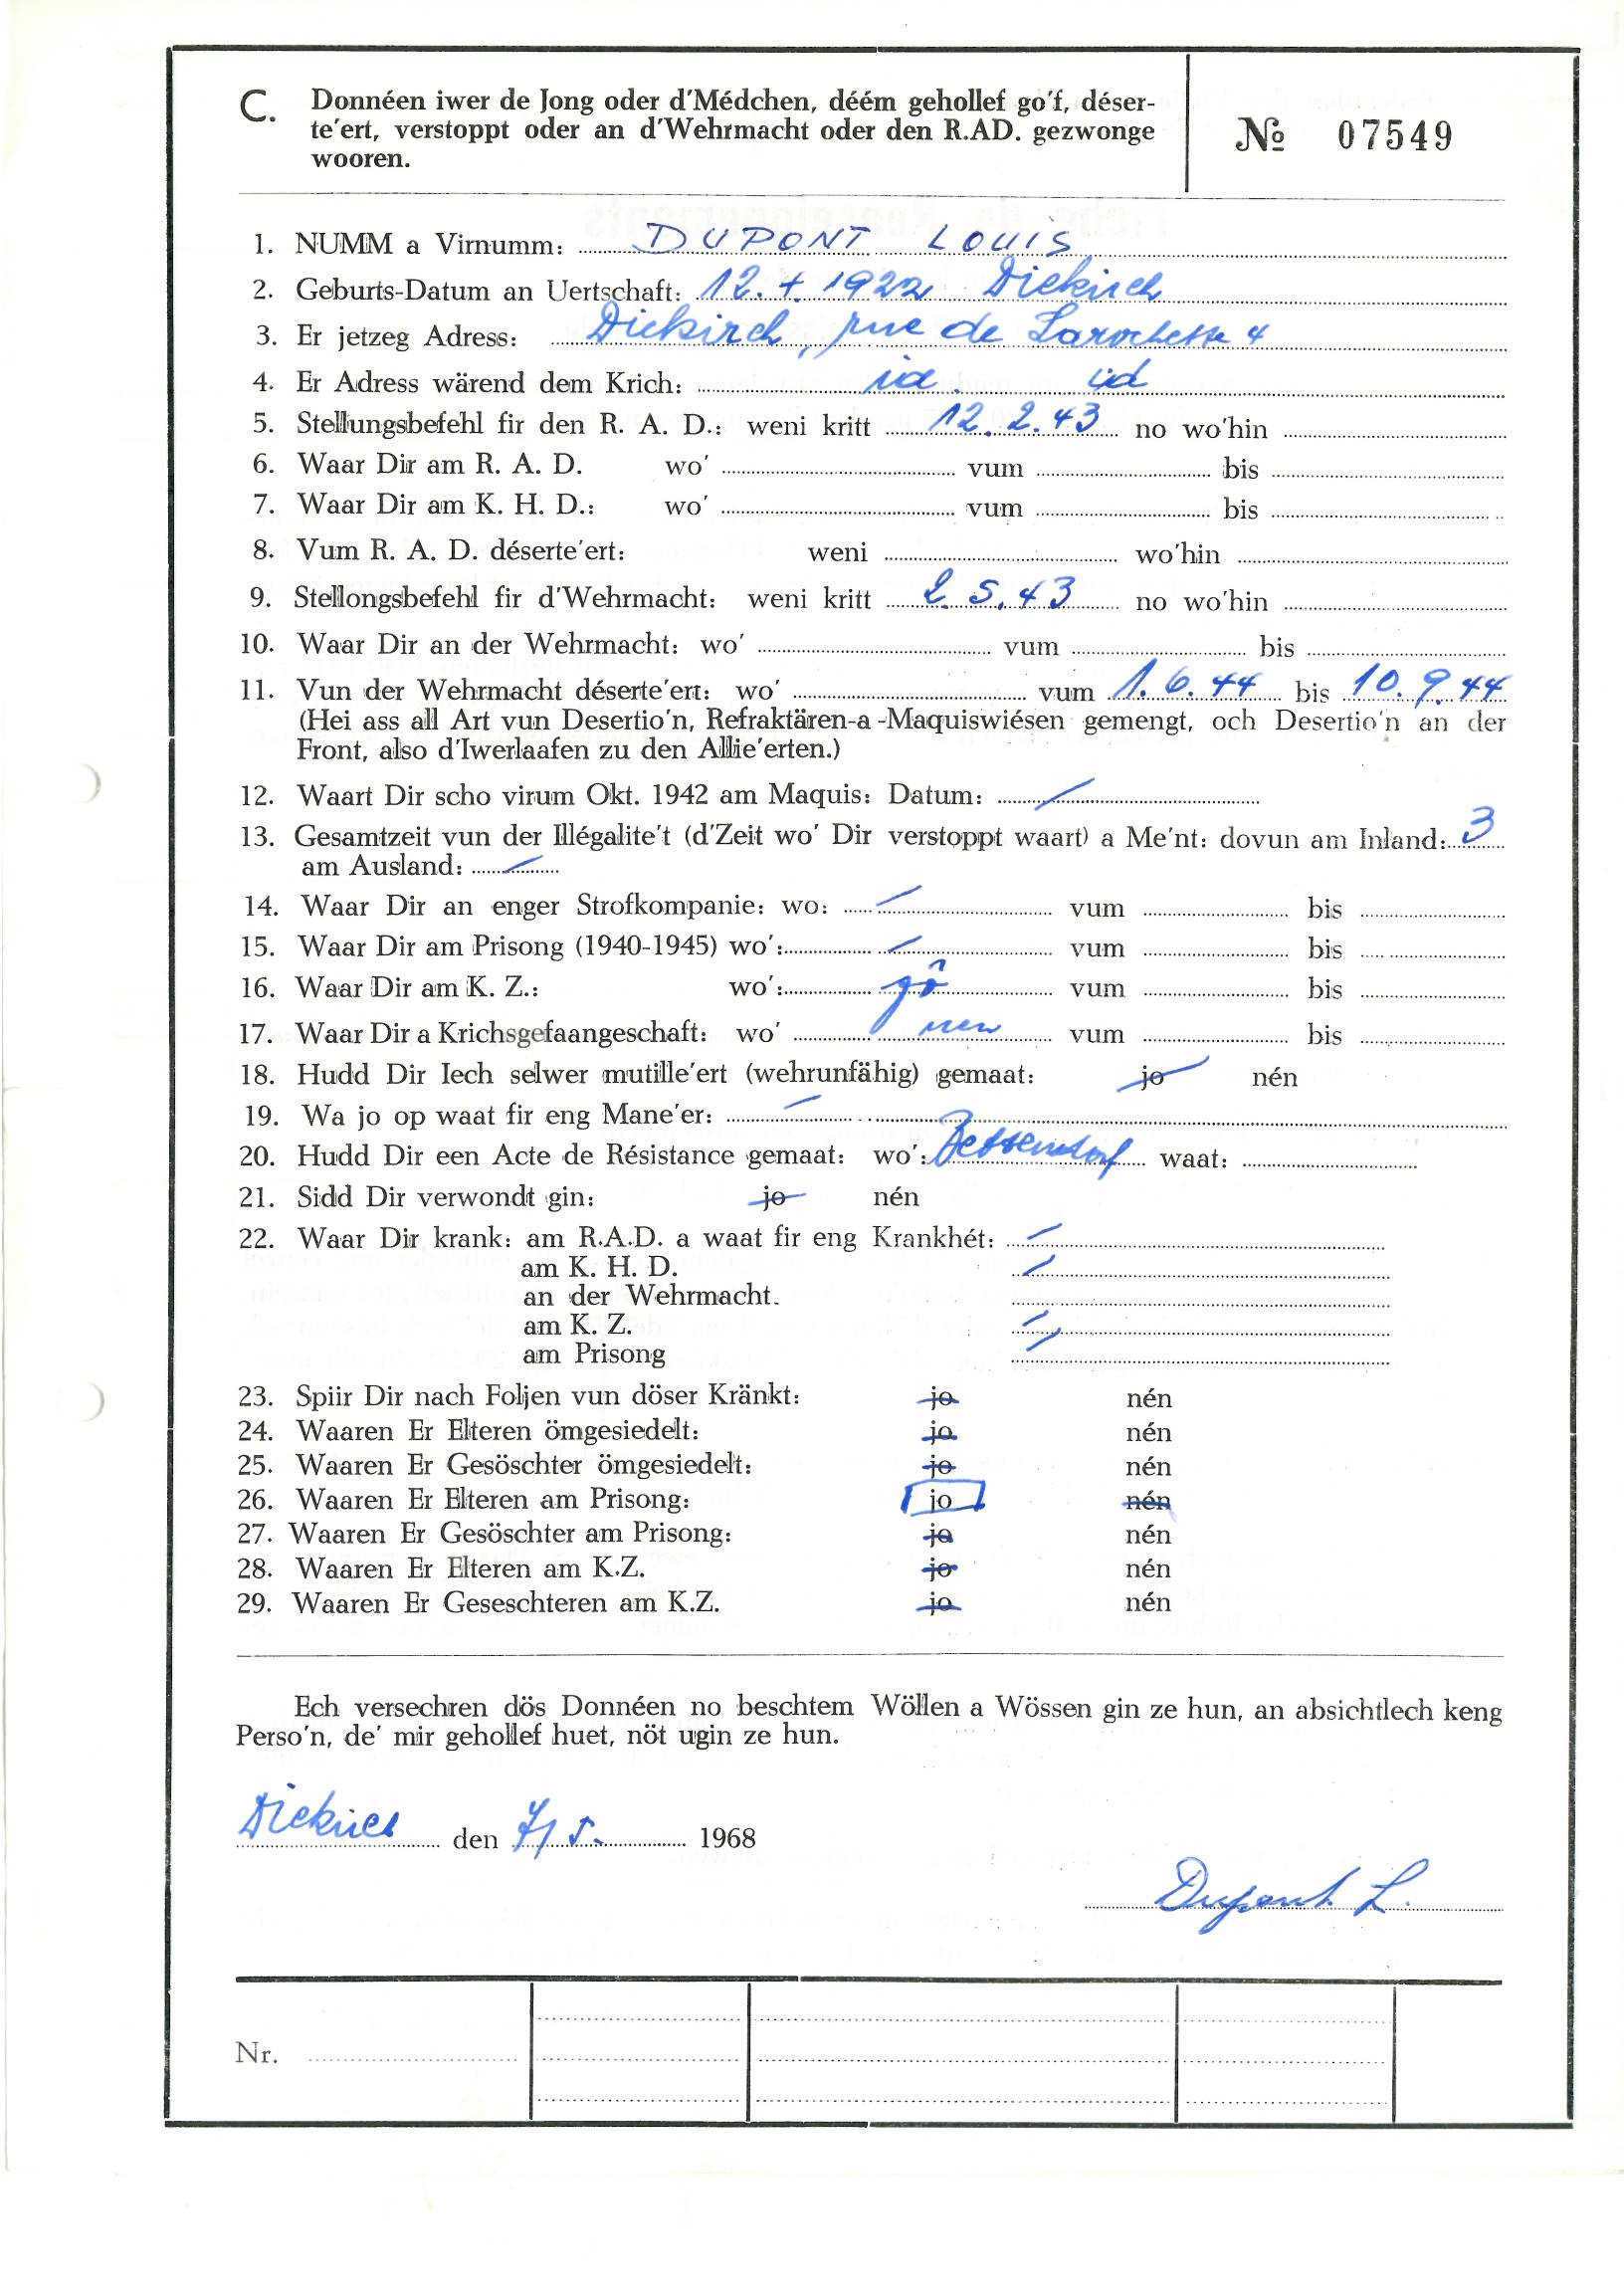 C. Donnéen iwer de Jong oder d'Médchen, déém gehollef go'f, déser-
te'ert, verstoppt oder an d'Wehrmacht oder den R.AD. gezwonge
wooren.
№ 07549
1. NUMM a Virnumm: DUPONT LOUIS
2. Geburts-Datum an Uertschaft: 12. 4. 1922 Diekirch
3. Er jetzeg Adress: Diekirch, rue de Larochette 4
4. Er Adress wärend dem Krich: id. id
5. Stellungsbefehl fir den R. A. D.: weni kritt 12. 2. 43 no wo'hin
6. Waar Dir am R. A. D. wo' vum bis
7. Waar Dir am K. H. D.: wo' vum bis
8. Vum R. A. D. déserte'ert: weni wo'hin
9. Stellongsbefehl fir d'Wehrmacht: weni kritt 2. 5. 43 no wo'hin
10. Waar Dir an der Wehrmacht: wo' vum bis
11. Vun der Wehrmacht déserte'ert: wo' vum 1. 6. 44 bis 10. 9. 44
(Hei ass all Art vun Desertio'n, Refraktären-a-Maquiswiésen gemengt, och Desertio'n an der
Front, also d'Iwerlaafen zu den Allie'erten.)
12. Waart Dir scho virum Okt. 1942 am Maquis: Datum: /
13. Gesamtzeit vun der Illégalite't (d'Zeit wo' Dir verstoppt waart) a Me'nt: dovun am Inland: 3
am Ausland: /
14. Waar Dir an enger Strofkompanie: wo: / vum bis
15. Waar Dir am Prisong (1940-1945) wo': / vum bis
16. Waar Dir am K. Z.: wo': vum bis
17. Waar Dir a Krichsgefaangeschaft: wo' nen vum bis
18. Hudd Dir Iech selwer mutille'ert (wehrunfähig) gemaat: jo nén
19. Wa jo op waat fir eng Mane'er: /
20. Hudd Dir een Acte de Résistance gemaat: wo': Bettendorf waat:
21. Sidd Dir verwondt gin: jo nén
22. Waar Dir krank: am R.A.D. a waat fir eng Krankhét: /
am K. H. D. /
an der Wehrmacht.
am K. Z. /
am Prisong /
23. Spiir Dir nach Foljen vun döser Kränkt: jo nén
24. Waaren Er Elteren ömgesiedelt: jo nén
25. Waaren Er Gesöschter ömgesiedelt: jo nén
26. Waaren Er Elteren am Prisong: jo nén
27. Waaren Er Gesöschter am Prisong: jo nén
28. Waaren Er Elteren am K.Z. jo nén
29. Waaren Er Geseschteren am K.Z. jo nén
Ech versechren dös Donnéen no beschtem Wöllen a Wössen gin ze hun, an absichtlech keng
Perso'n, de' mir gehollef huet, nöt ugin ze hun.
Diekirch den 7/5. 1968
Dupont L.
Nr.